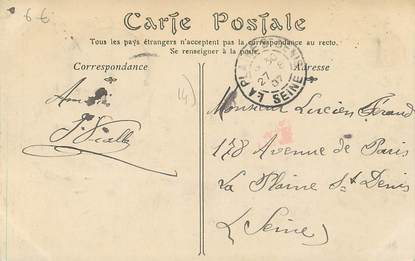 6 6
Carte Postale
Tous les pays étrangers n'acceptent pas la correspondance au recto.
Se renseigner à la poste.
Correspondance
Adresse
LA PLAINE ST DENIS
27
07
SEINE
Monsieur Lucien Girard
178 Avenue de Paris
La Plaine St Denis
(Seine)